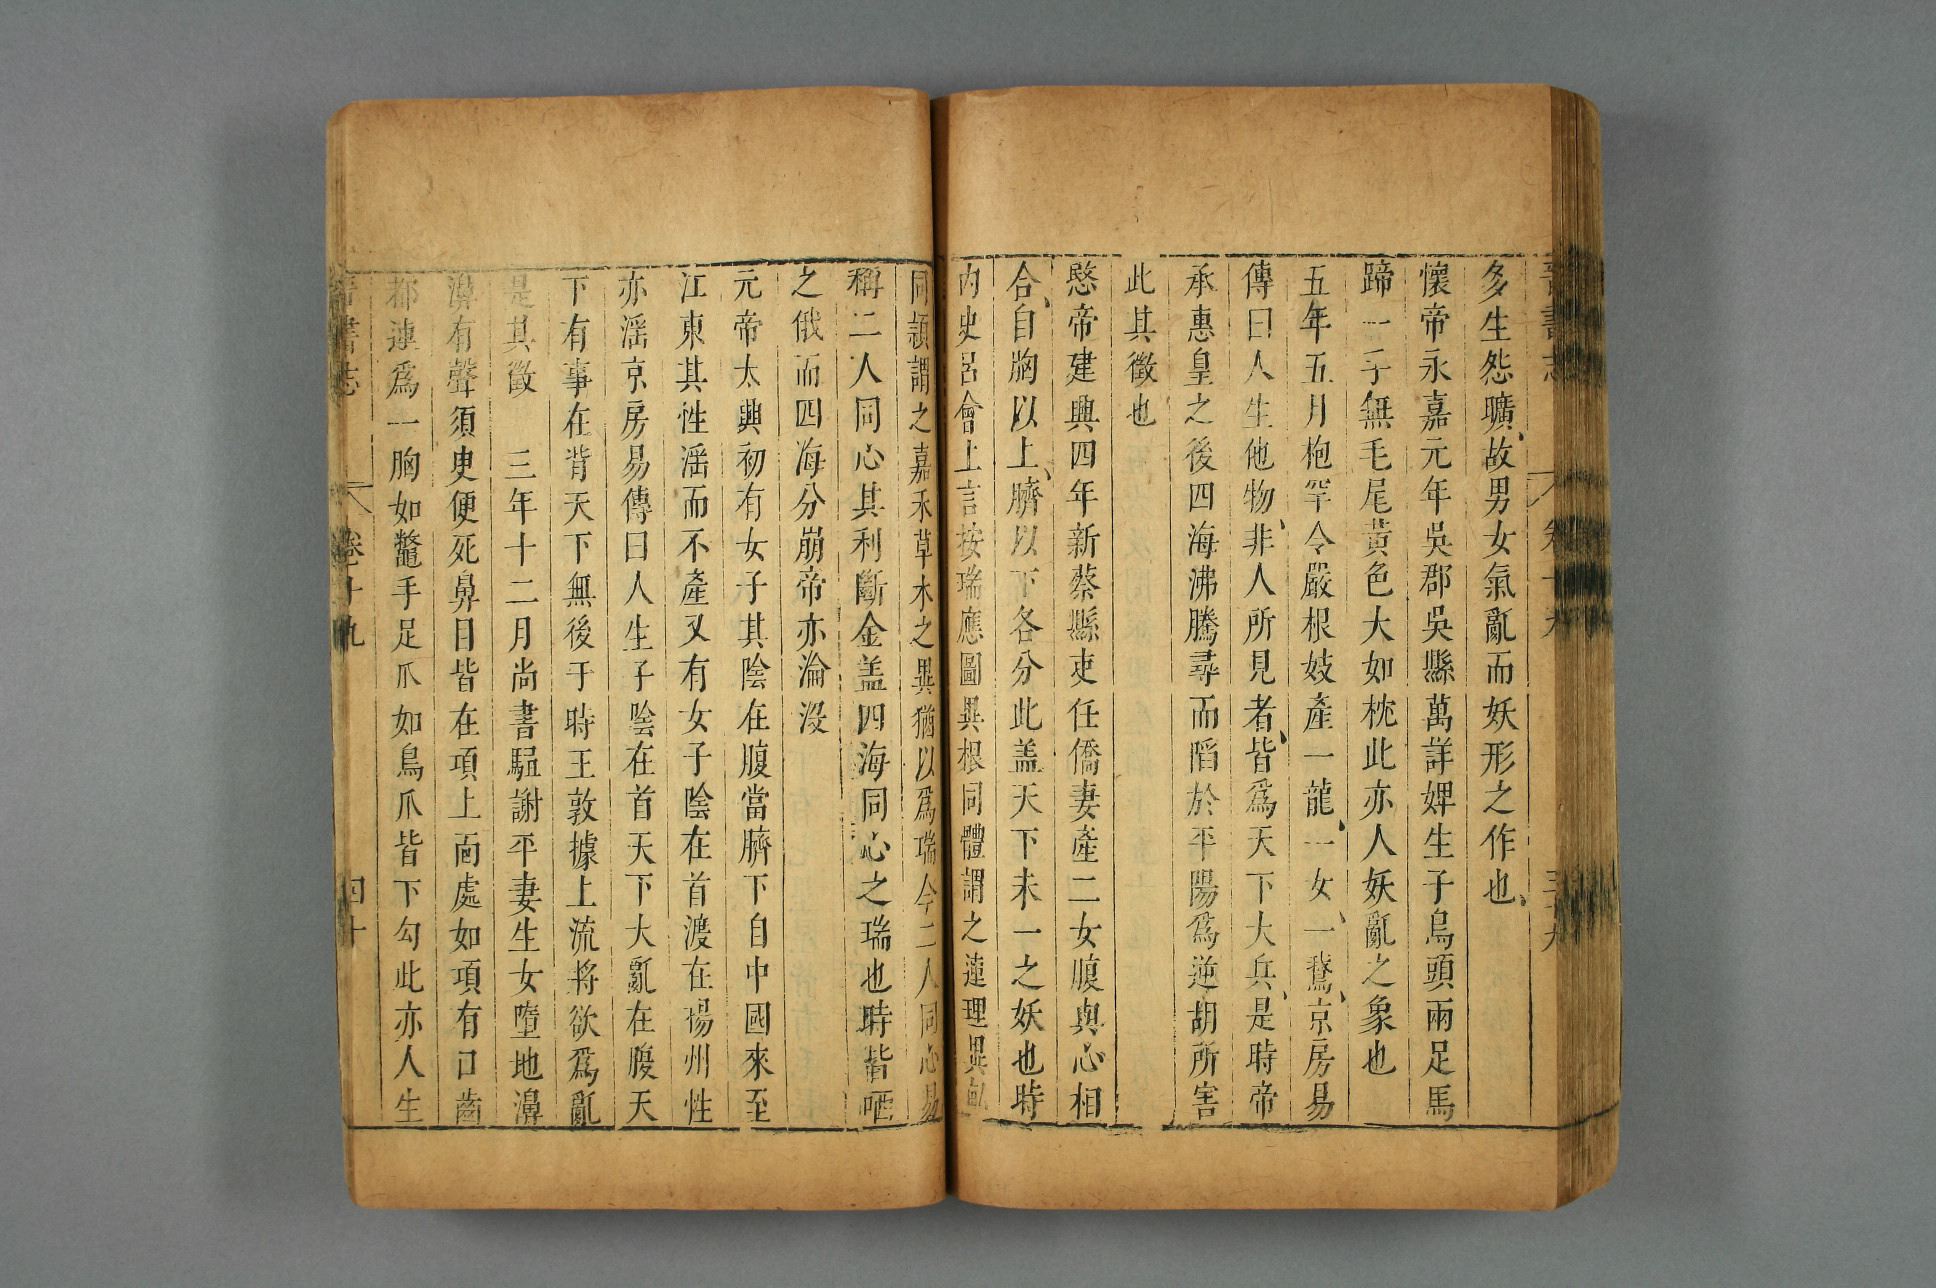 多生怨曠故男女氣亂而妖形之作也
懷帝永嘉元年吳郡吳縣萬詳婢生子鳥頭兩足馬
蹄一手無毛尾黃色大如枕此亦人妖亂之象也
五年五月枹罕令嚴根妓產一龍一女一鵞京房易
傳曰人生他物非人所見者皆爲天下大兵是時帝
承惠皇之後四海沸騰尋而陷於平陽爲逆胡所害
此其徵也
愍帝建興四年新蔡縣吏任僑妻產二女腹與心相
合自胸以上臍以下各分此盖天下未一之妖也時
內史呂會上言按瑞應圖異根同體謂之連理異畝
同頴謂之嘉禾草木之異猶以爲瑞今二人同心易
稱二人同心其利斷金盖四海同心之瑞也時皆哂
之俄而四海分崩帝亦淪没
元帝太興初有女子其陰在腹當臍下自中國來至
江東其性滛而不產又有女子陰在首渡在揚州性
亦滛京房易傳曰人生子陰在首天下大亂在腹天
下有事在背天下無後于時王敦據上流將欲爲亂
是其徵　三年十二月尚書騶謝平妻生女墮地濞
濞有聲須臾便死鼻目皆在項上面處如項有口齒
都連爲一胸如鼈手足爪如鳥爪皆下勾此亦人生
晉書志　卷十九　四十